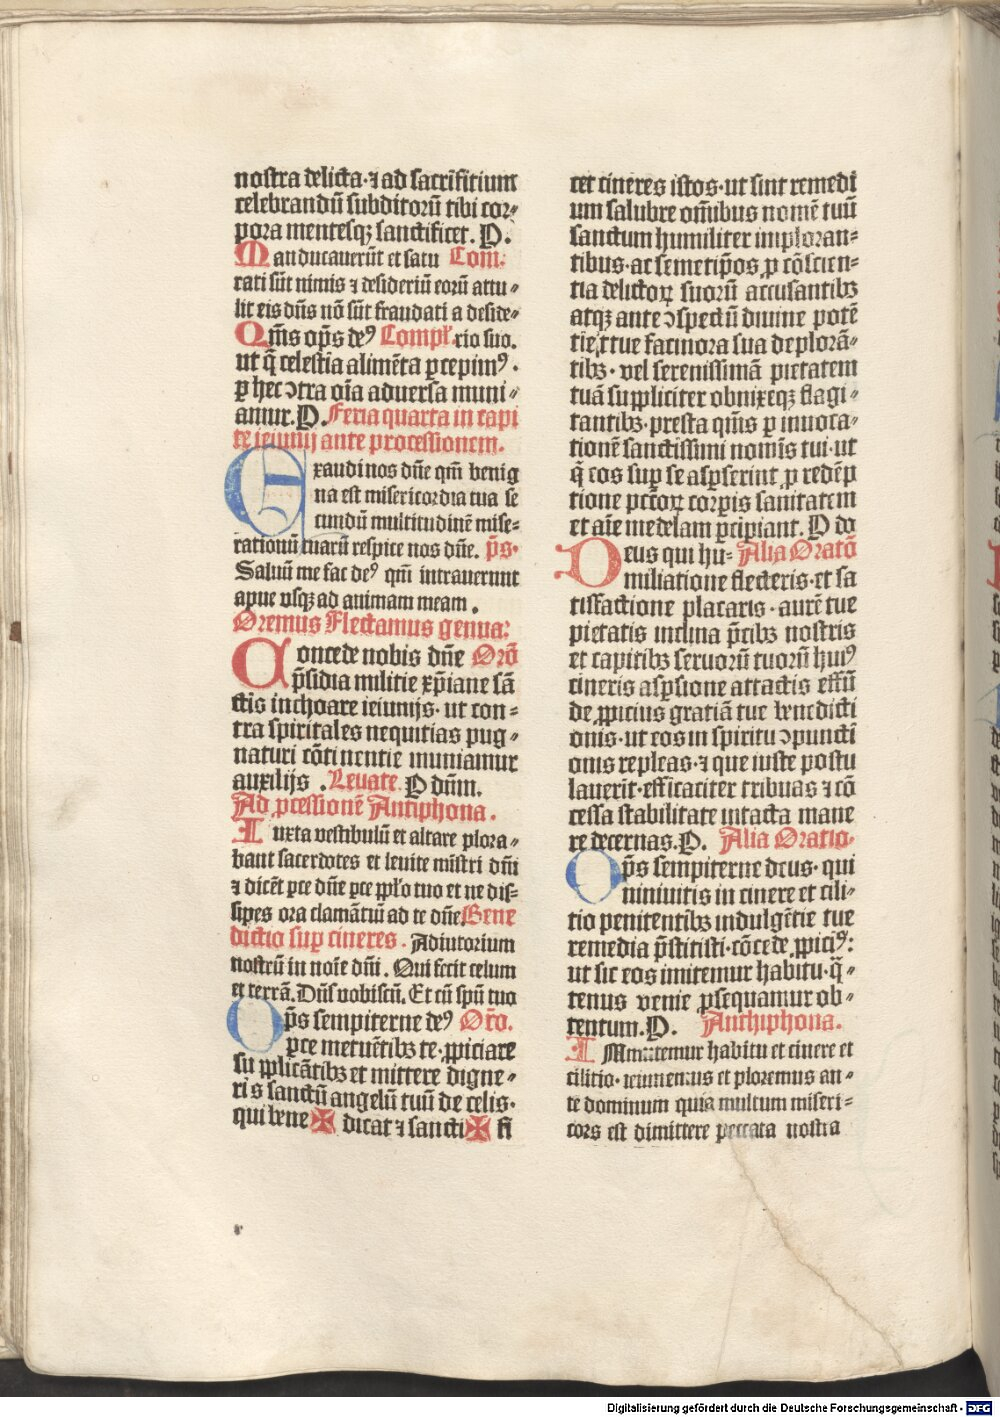 nostra delicta·ꝛ ad sacrifitium
celebrandū subditorū tibi cor⸗
pora mentesqꝫ sanctificet. P.
Manducauerūt et satu Com:
rati sūt nimis ꝛ desideriū eorū attu⸗
lit eis dn̄s nō sūt fraudati a deside⸗
Om̄s op̄s deꝰ Compl̄. rio suo.
ut q̄ celestia alimēta ꝑcepimꝰ·
ꝑ hec ↄtra oīa aduersa muni⸗
amur. P. Feria quarta in capi
te ieiunij ante processionem.
Exaudi nos dn̄e qm̄ benig
na est misericordia tua se
cundū multitudinē mise⸗
rationū tuarū respice nos dn̄e. p̄s·
Saluū me fac deꝰ qm̄ intrauerunt
aque vsqꝫ ad animam meam.
Oremus Flectamus genua:
Concede nobis dn̄e Orō
p̄sidia militie xp̄iane sā
ctis inchoare ieiunijs· ut con⸗
tra spiritales nequitias pug⸗
naturi cōtinentie muniamur
auxilijs. Leuate. P dn̄m.
Ad ꝓcessionē Antiphona.
Iuxta vestibulū et altare plora⸗
bant sacerdotes et leuite mīstri dn̄i
ꝛ dicēt ꝑce dn̄e ꝑce pplo̅ tuo et ne dis⸗
sipes ora clamātiū ad te dn̄e Bene
dictio sup cineres. Adiutorium
nostrū in noīe dn̄i. Qui fecit celum
et terrā. Dn̄s vobiscū. Et cū spū tuo
Op̄s sempiterne deꝰ Orō.
ꝑce metuētibꝫ te· ꝓpiciare
supplicātibꝫ et mittere digne⸗
ris sanctū angelū tuū de celis·
qui bene✠dicat ꝛ sancti✠fi
cet cineres istos· ut sint remedi
um salubre om̄ibus nomē tuū
sanctum humiliter imploran⸗
tibus· ac semetip̄os ꝓ cōscien⸗
tia delictoꝝ suorū accusantibꝫ
atqꝫ ante ↄspectū diuine potē
tie· tue facinora sua deplorā⸗
tibꝫ· vel serenissimā pietatem
tuā suppliciter obnixeqꝫ flagi⸗
tantibꝫ· presta qm̄s ꝑ inuoca⸗
tionē sanctissimi nomīs tui· ut
q̄ eos sup se asꝑserint ꝓ redēp
tione pctōꝝ corꝑis sanitatem
et aīe medelam ꝑcipiant. P do
Deus qui hu⸗ Alia Oratō
miliatione flecteris· et sa
tisfactione placaris· aurē tue
pietatis inclina p̄cibꝫ nostris
et capitibꝫ seruorū tuorū huiꝰ
cineris asꝑsione attactis effū
de ꝓpicius gratiā tue benedicti
onis· ut eos in spiritu ↄpuncti
onis repleas· ꝛ que iuste postu
lauerīt· efficaciter tribuas ꝛ cō
cessa stabilitate intacta mane
re decernas. P. Alia Oratio·
Op̄s sempiterne deus· qui
niniuitis in cinere et cili⸗
tio penitentibꝫ indulgētie tue
remedia p̄stitisti· cōcede ꝓpiciꝰ:
ut sic eos imitemur habitu· q̄⸗
tenus venie ꝓsequamur ob⸗
tentum. P. Anthiphona.
IMmutemur habitu et cinere et
cilitio· ieiunemus et ploremus an⸗
te dominum quia multum miseri⸗
cors est dimittere peccata nostra
Digitalisierung gefördert durch die Deutsche Forschungsgemeinschaft - DFG